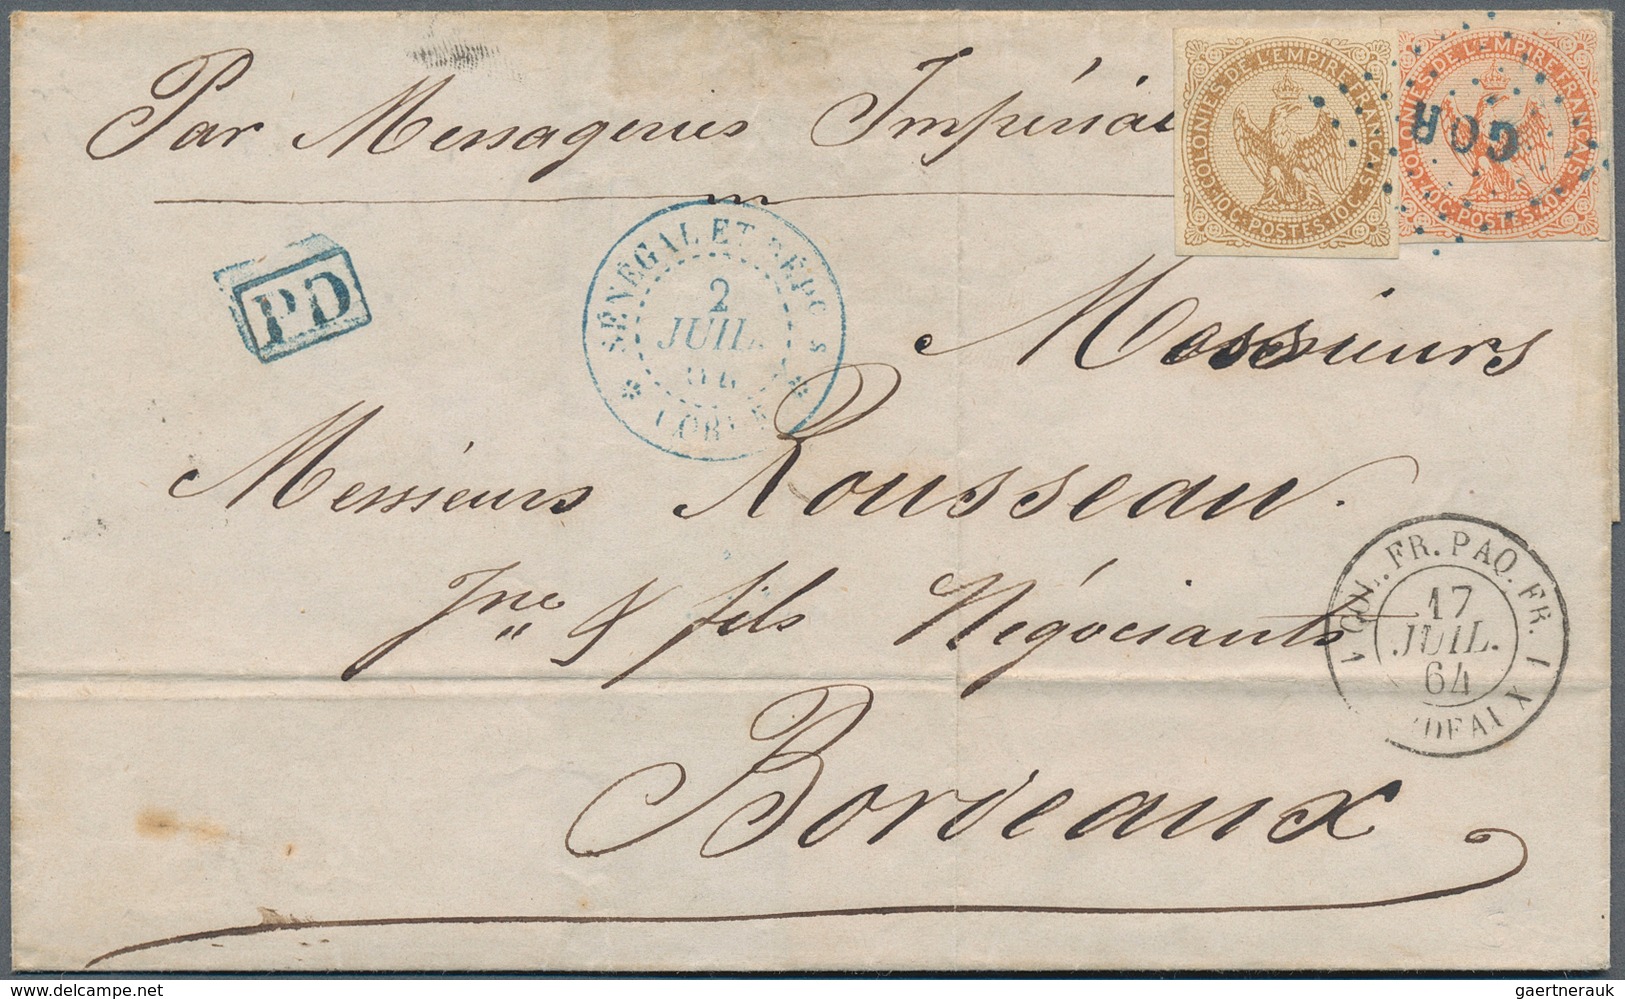 Par Messageries Impérial
COLONIES·DE·L'EMPIRE FRANÇAIS·
10C·POSTES·10C·
COLONIES·DE·L'EMPIRE FRANÇAIS·
40C·POSTES·40C·
GOR
PD
SÉNÉGAL ET DÉP
2
JUIL.
GORÉE
Messieurs
Messieurs Rousseau.
Jne & fils Négociants
Bordeaux
COL. FR. PAQ. FR. 1
17
JUIL.
64
DEAUX
delcampe.net
gaertnerauk